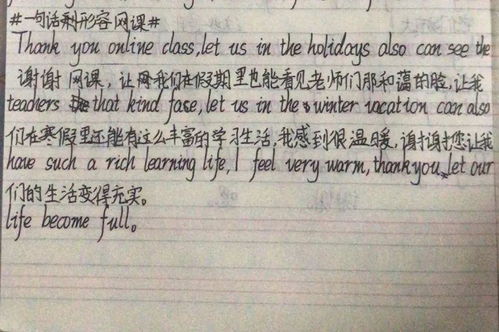 #一句话来形容网课#
Thank you online class, let us in the holidays also can see the
谢谢网课，让我们在假期里也能看见老师们那和蔼的脸，让我
teachers that kind fase, let us in the winter vacation can also
们在寒假里还能有这么丰富的学习生活，我感到很温暖，谢谢您让我
have such a rich learning life, I feel very warm, thank you, let our
们的生活变得充实。
life become full。